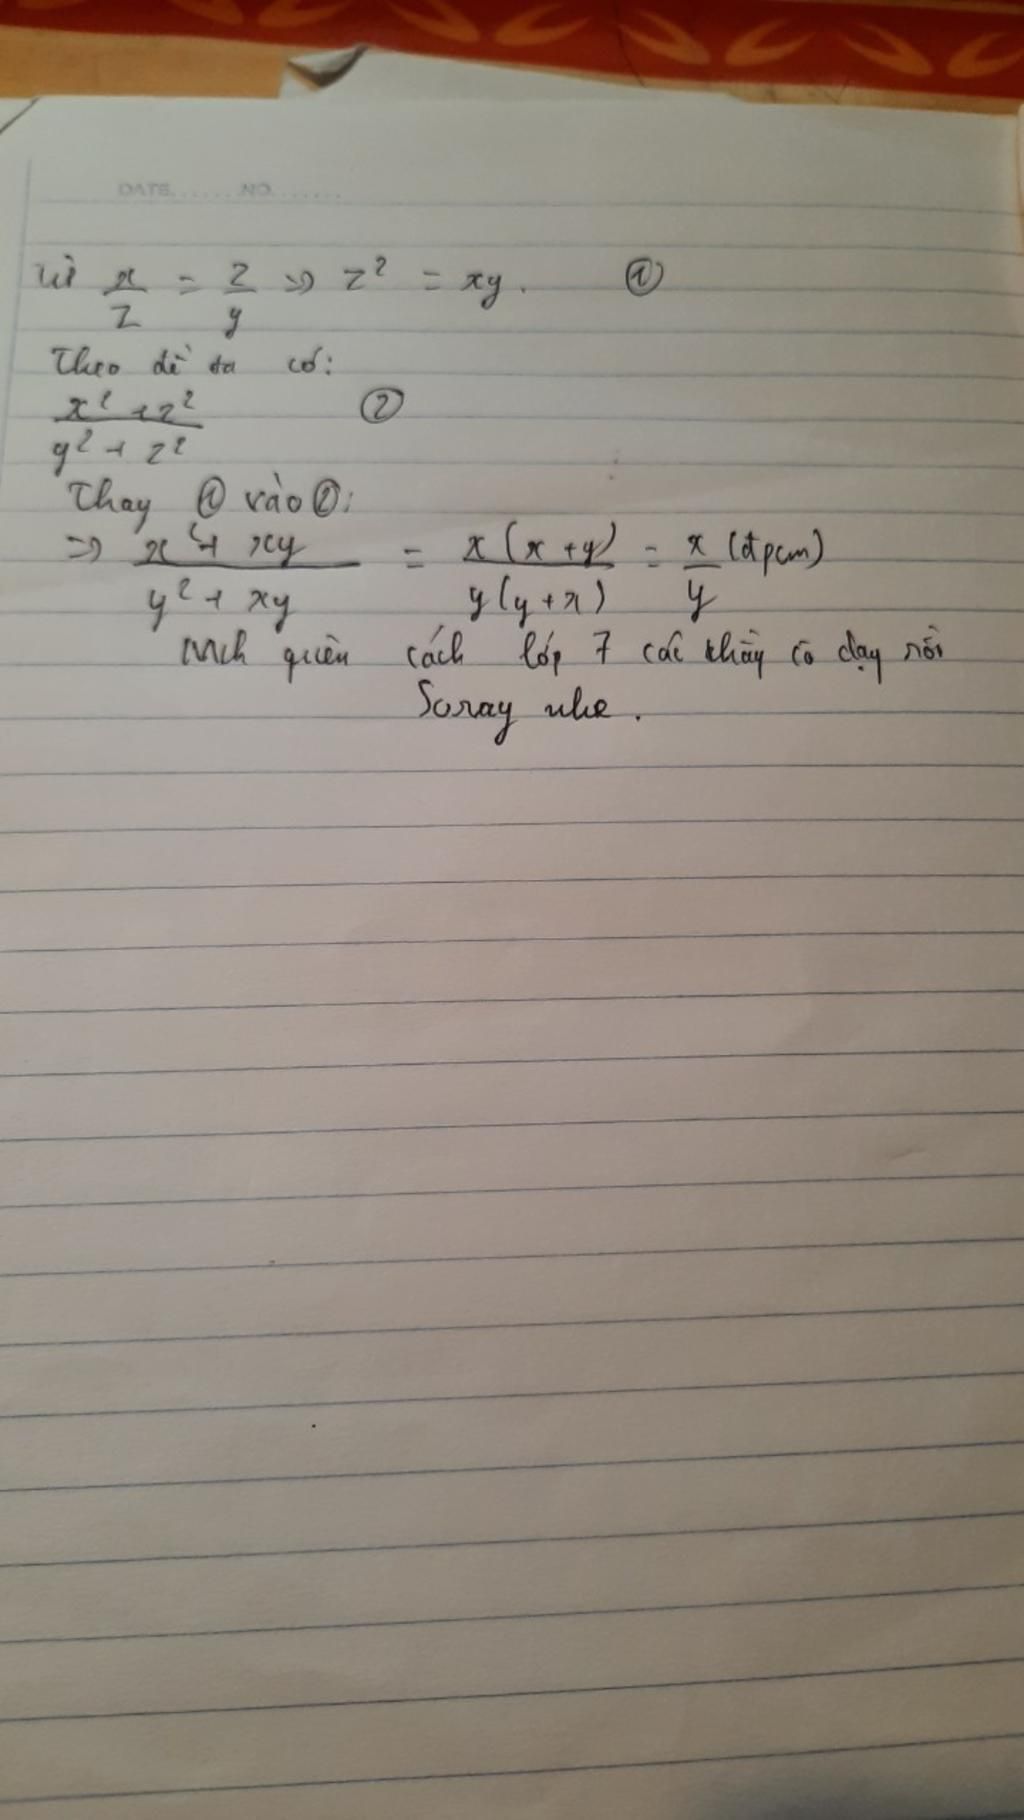 DATE.......NO.......
Vì x/z = z/y => z² = xy. ①
Theo đề ta có:
x² + z² / y² + z² ②
Thay ① vào ②:
=> x² + xy / y² + xy = x(x + y) / y(y + x) = x/y (đpcm)
Mik quên cách lớp 7 các thầy cô dạy rồi
Soray nhe.